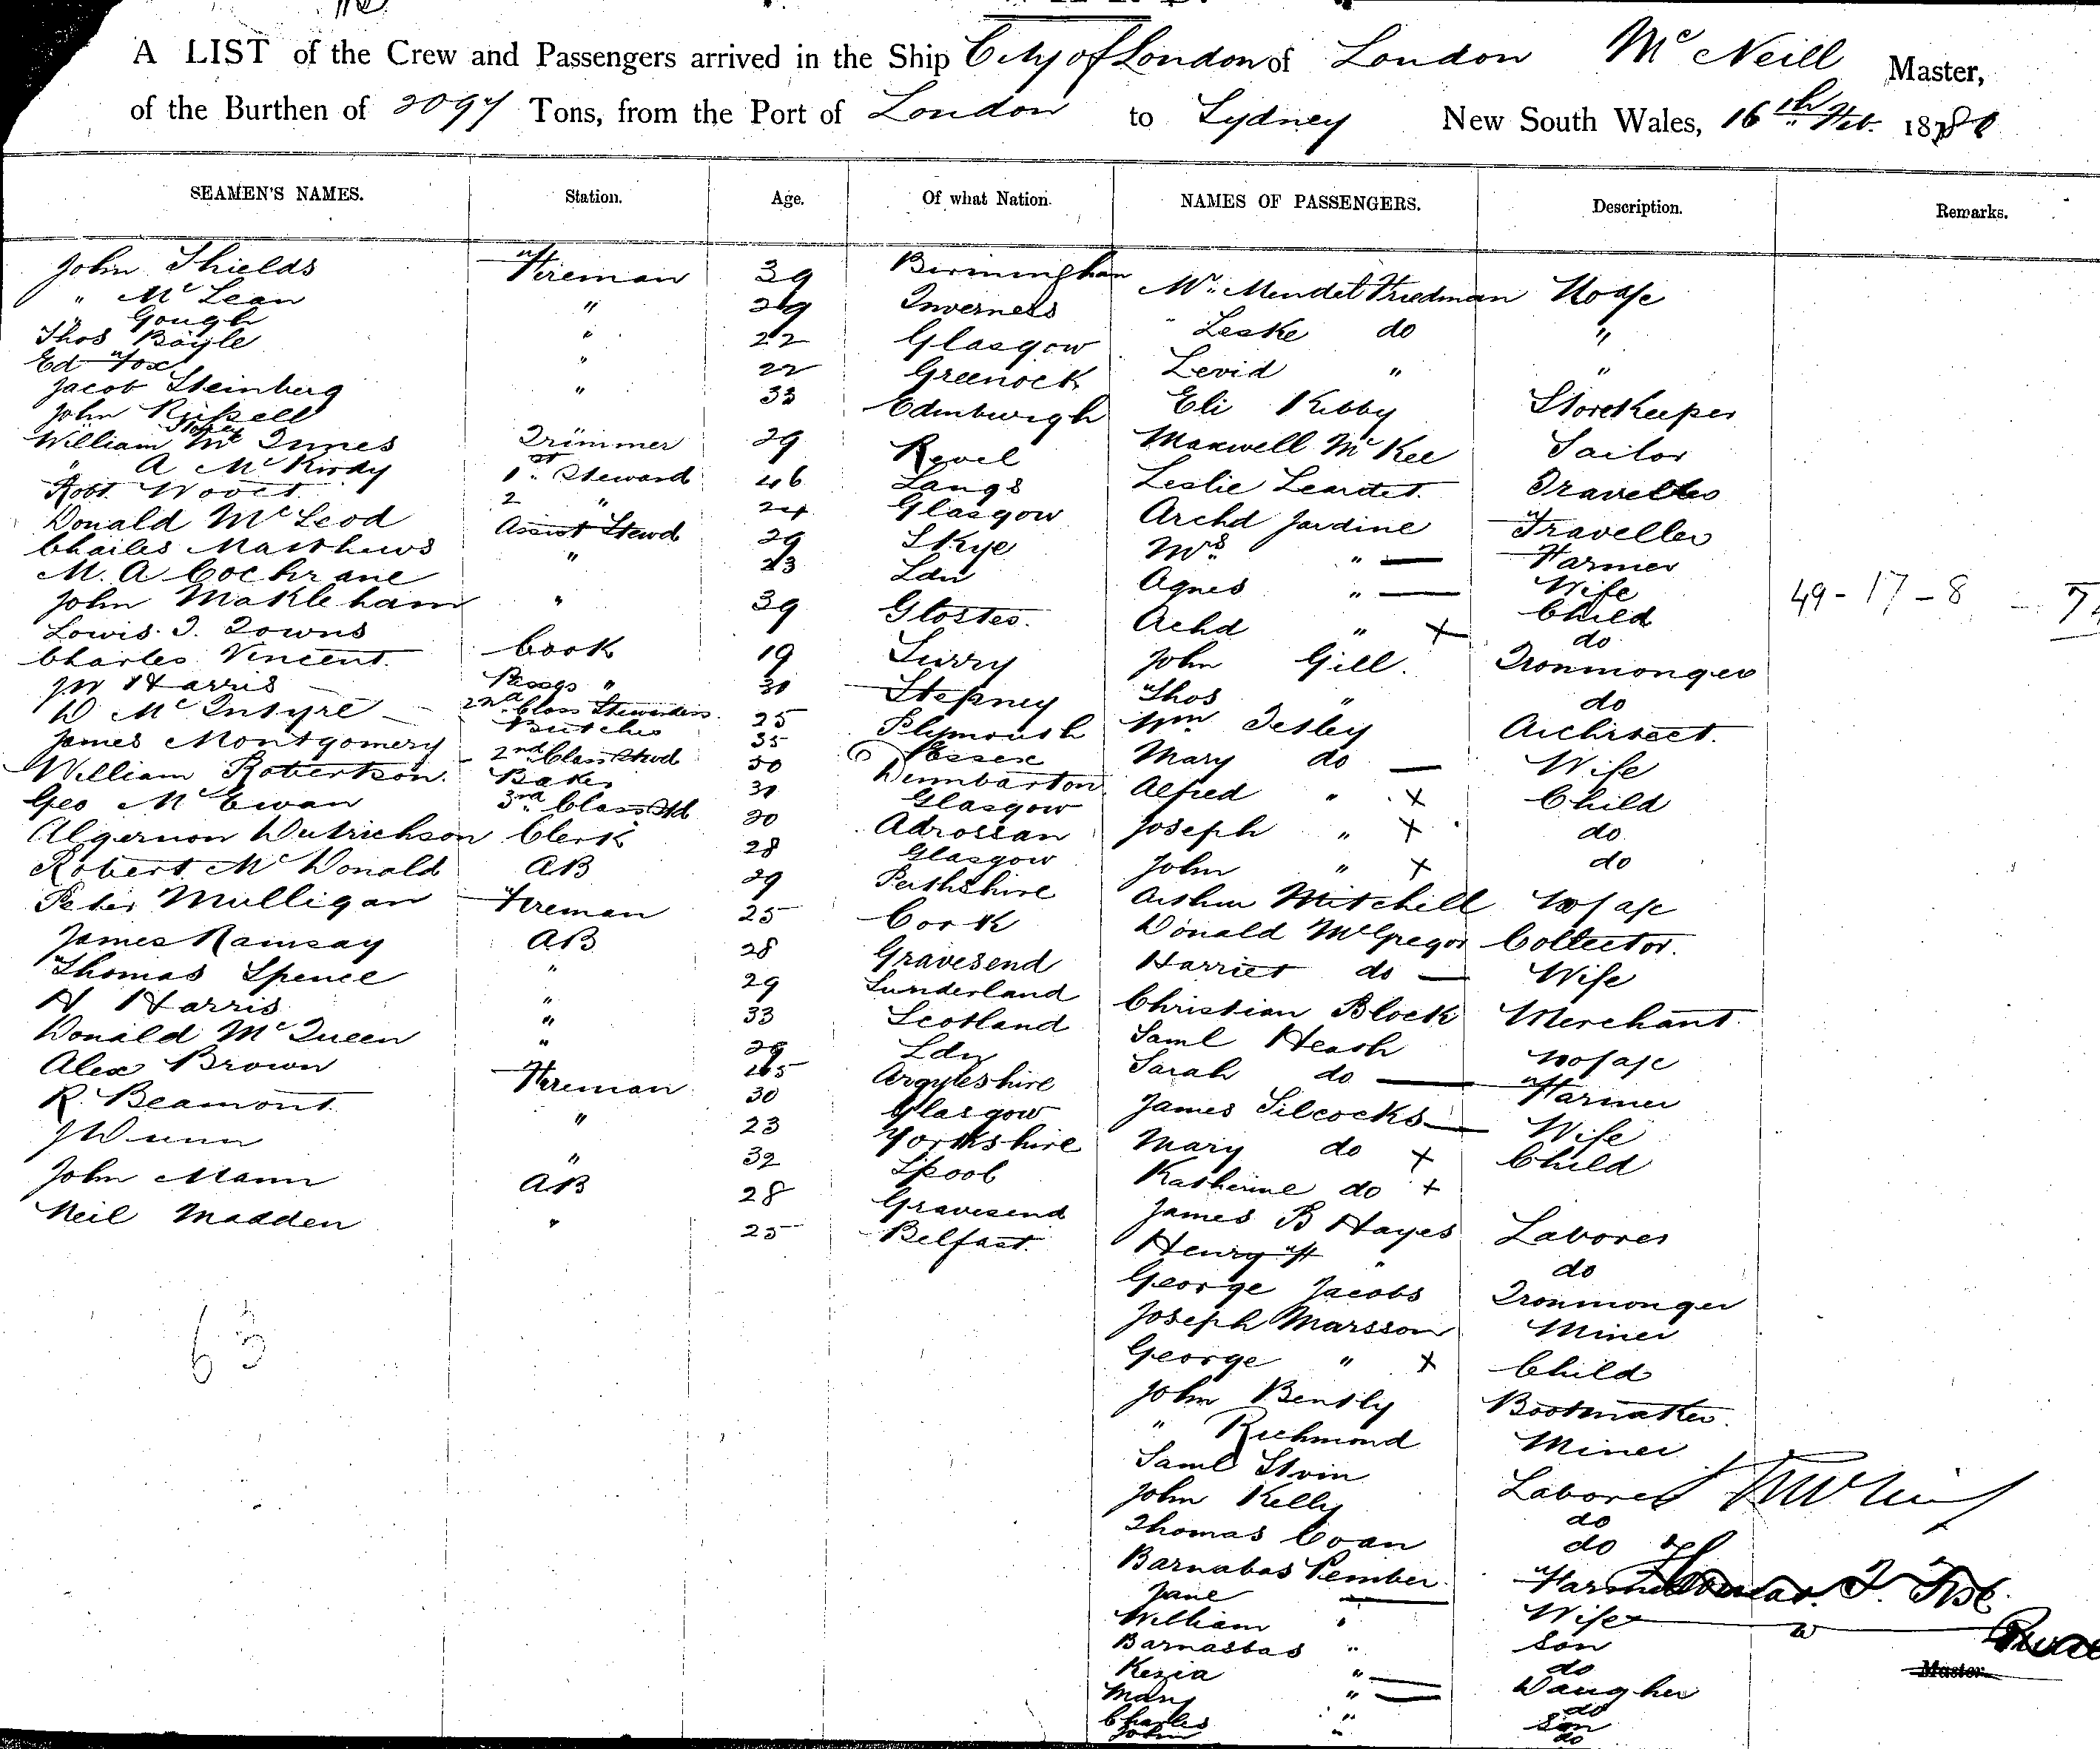 A LIST of the Crew and Passengers arrived in the Ship City of London of London McNeill Master,
of the Burthen of Tons, from the Port of London to Sydney New South Wales, 16th Feb. 18
SEAMEN'S NAMES. Station. Age. Of what Nation. NAMES OF PASSENGERS. Description. Remarks.
John Shields Fireman 39 Birmingham Mr. Mendel Friedman
" McLean " 29 Inverness " Leske do "
" Gough " 22 Glasgow Levid " "
Thos Boyle " 22 Greenock Eli Kibby Storekeeper
Ed Fox " 33 Edinburgh Maxwell McKee Sailor
Jacob Steinberg Trimmer 29 Revel Leslie
John Russell 1st Steward 46 Langs Archd Jardine Traveller
William McInnes 2 " 24 Glasgow Mrs " Farmer
" A McKirdy Assist Stewd 29 Skye Agnes " Wife
Robt " 23 Ldn Achd " x Child
Donald McLeod " 39 Gloster John Gill. do
Charles Matthews Cook 19 Surry Thos " Ironmonger
M. A Cochrane Passgs " 31 Stepney Wm Tetley do
John Makleham 2nd Class Stewardess 25 Plymouth Mary do Architect.
Lowis. T. Towns Butcher 35 Essex Alfred " x Wife
Charles Vincent. 2nd Class Stwd 50 Dumbarton Joseph " x Child
JW Harris Baker 31 Glasgow John " x do
D McIntyre 3rd Class Std 20 Adrossan Arthur Mitchell do
James Montgomery Clerk 28 Glasgow Donald McGregor Collector.
William Robertson. AB 29 Perthshire Harriet do Wife
Geo McEwan Fireman 25 Cork Christian Block Merchant.
Algernon Dutrichson AB 28 Gravesend Saml Heash
Robert McDonald " 29 Sunderland Sarah do Farmer
Peter Mulligan " 33 Scotland James Silcocks Wife
James Ramsay " 29 Ldn Mary do x Child
Thomas Spence Fireman Argyleshire Katherine do +
H Harris " 30 Glasgow James B Hayes Laborer
Donald McQueen " 23 Yorkshire Henry H " do
Alex Brown AB 32 Lpool George Jacobs Ironmonger
R. Beamont. " 28 Gravesend Joseph Marsson Miner
J Dunn 25 Belfast. George " x Child
John Mann John Bently Bootmaker.
Neil Madden " Richmond Miner
Saml Laborer
John Kelly do
Thomas Coan do
Barnabas Pember Farmer
Jane Wife
William " Son
Barnabas " do
Kezia " Daugher
Mary " do
Charles " Son
John " do
49-17-8
63
Master.